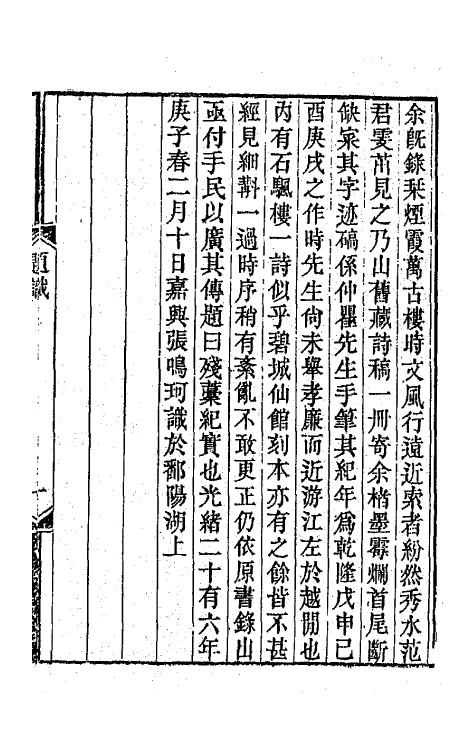 余旣錄栞煙霞萬古樓時文風行遠近索者紛然秀水范
君雯茁見之乃山舊藏詩稿一册寄余楮墨霉爛首尾斷
缺宷其字迹碻係仲瞿先生手筆其紀年爲乾隆戊申己
酉庚戌之作時先生尙未舉孝廉而近游江左於越閒也
內有石飄樓一詩似乎碧城仙館刻本亦有之餘皆不甚
經見細斠一過時序稍有紊亂不敢更正仍依原書錄出
亟付手民以廣其傳題曰殘藁紀實也光緒二十有六年
庚子春二月十日嘉興張鳴珂識於鄱陽湖上
題識
一